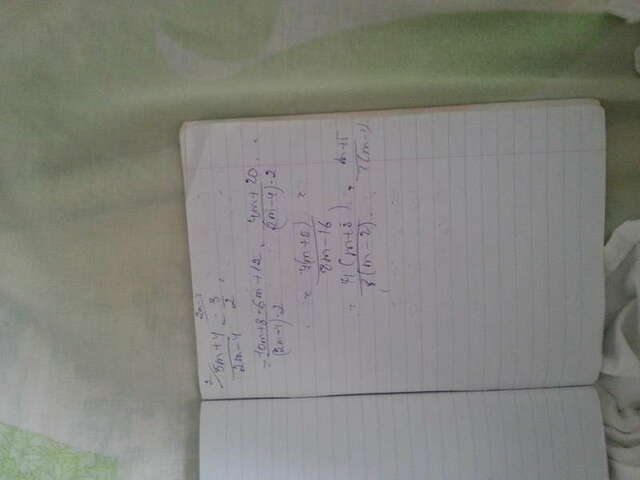 2 2m-4
5m+4/2m-4 - 3/2 =
= 10m+8-6m+12/(2m-4)·2 = 4m+20/(2m-4)·2 =
= 4(m+5)/8m-16 =
= 4(m+5)/8(m-2) = m+5